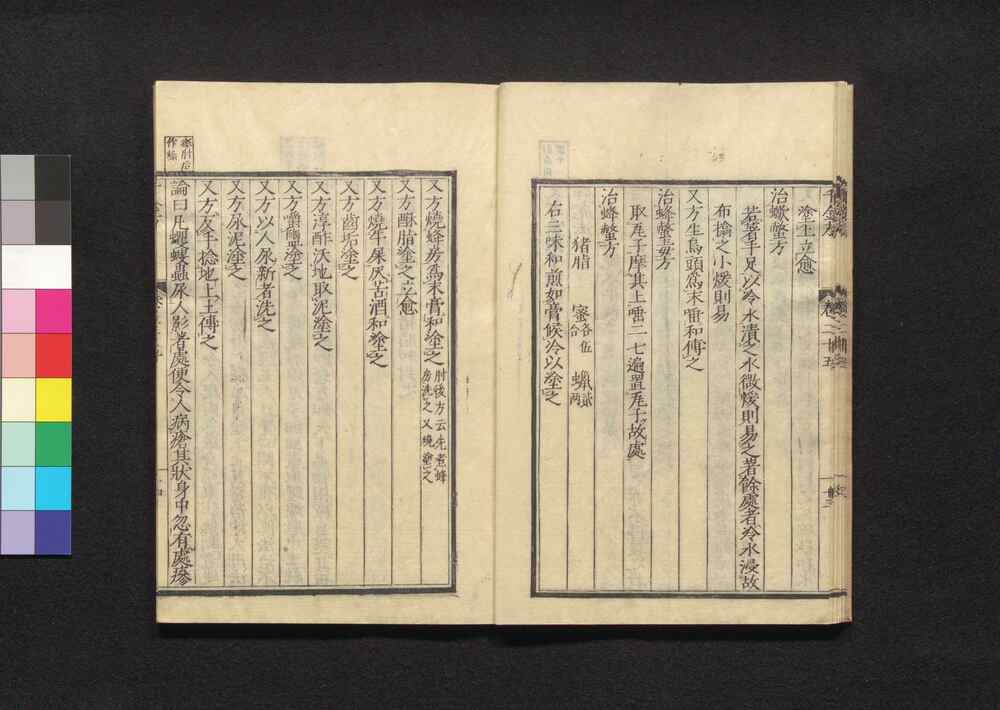 千金方
卷二十五
塗上立愈
治蠍螫方
若著手足以冷水漬之水微煖則易之著餘處者冷水浸故
布搨之小煖則易
又方生烏頭為末唾和傅之
治蜂螫毒方
取瓦子摩其上唾二七遍置瓦子故處
治蜂螫方
猪脂 蜜各伍合 蠟貳兩
右三味和煎如膏候冷以塗之
又方燒蜂房為末膏和塗之肘後方云先煮蜂房洗之又燒塗之
又方酥脂塗之立愈
又方燒牛屎灰苦酒和塗之
又方齒垢塗之
又方淳酢沃地取泥塗之
又方嚼鹽塗之
又方以人尿新者洗之
又方尿泥塗之
又方反手捻地上土傅之
論曰凡蠼螋蟲尿人影著處便令人病瘡其狀身中忽有處㾦